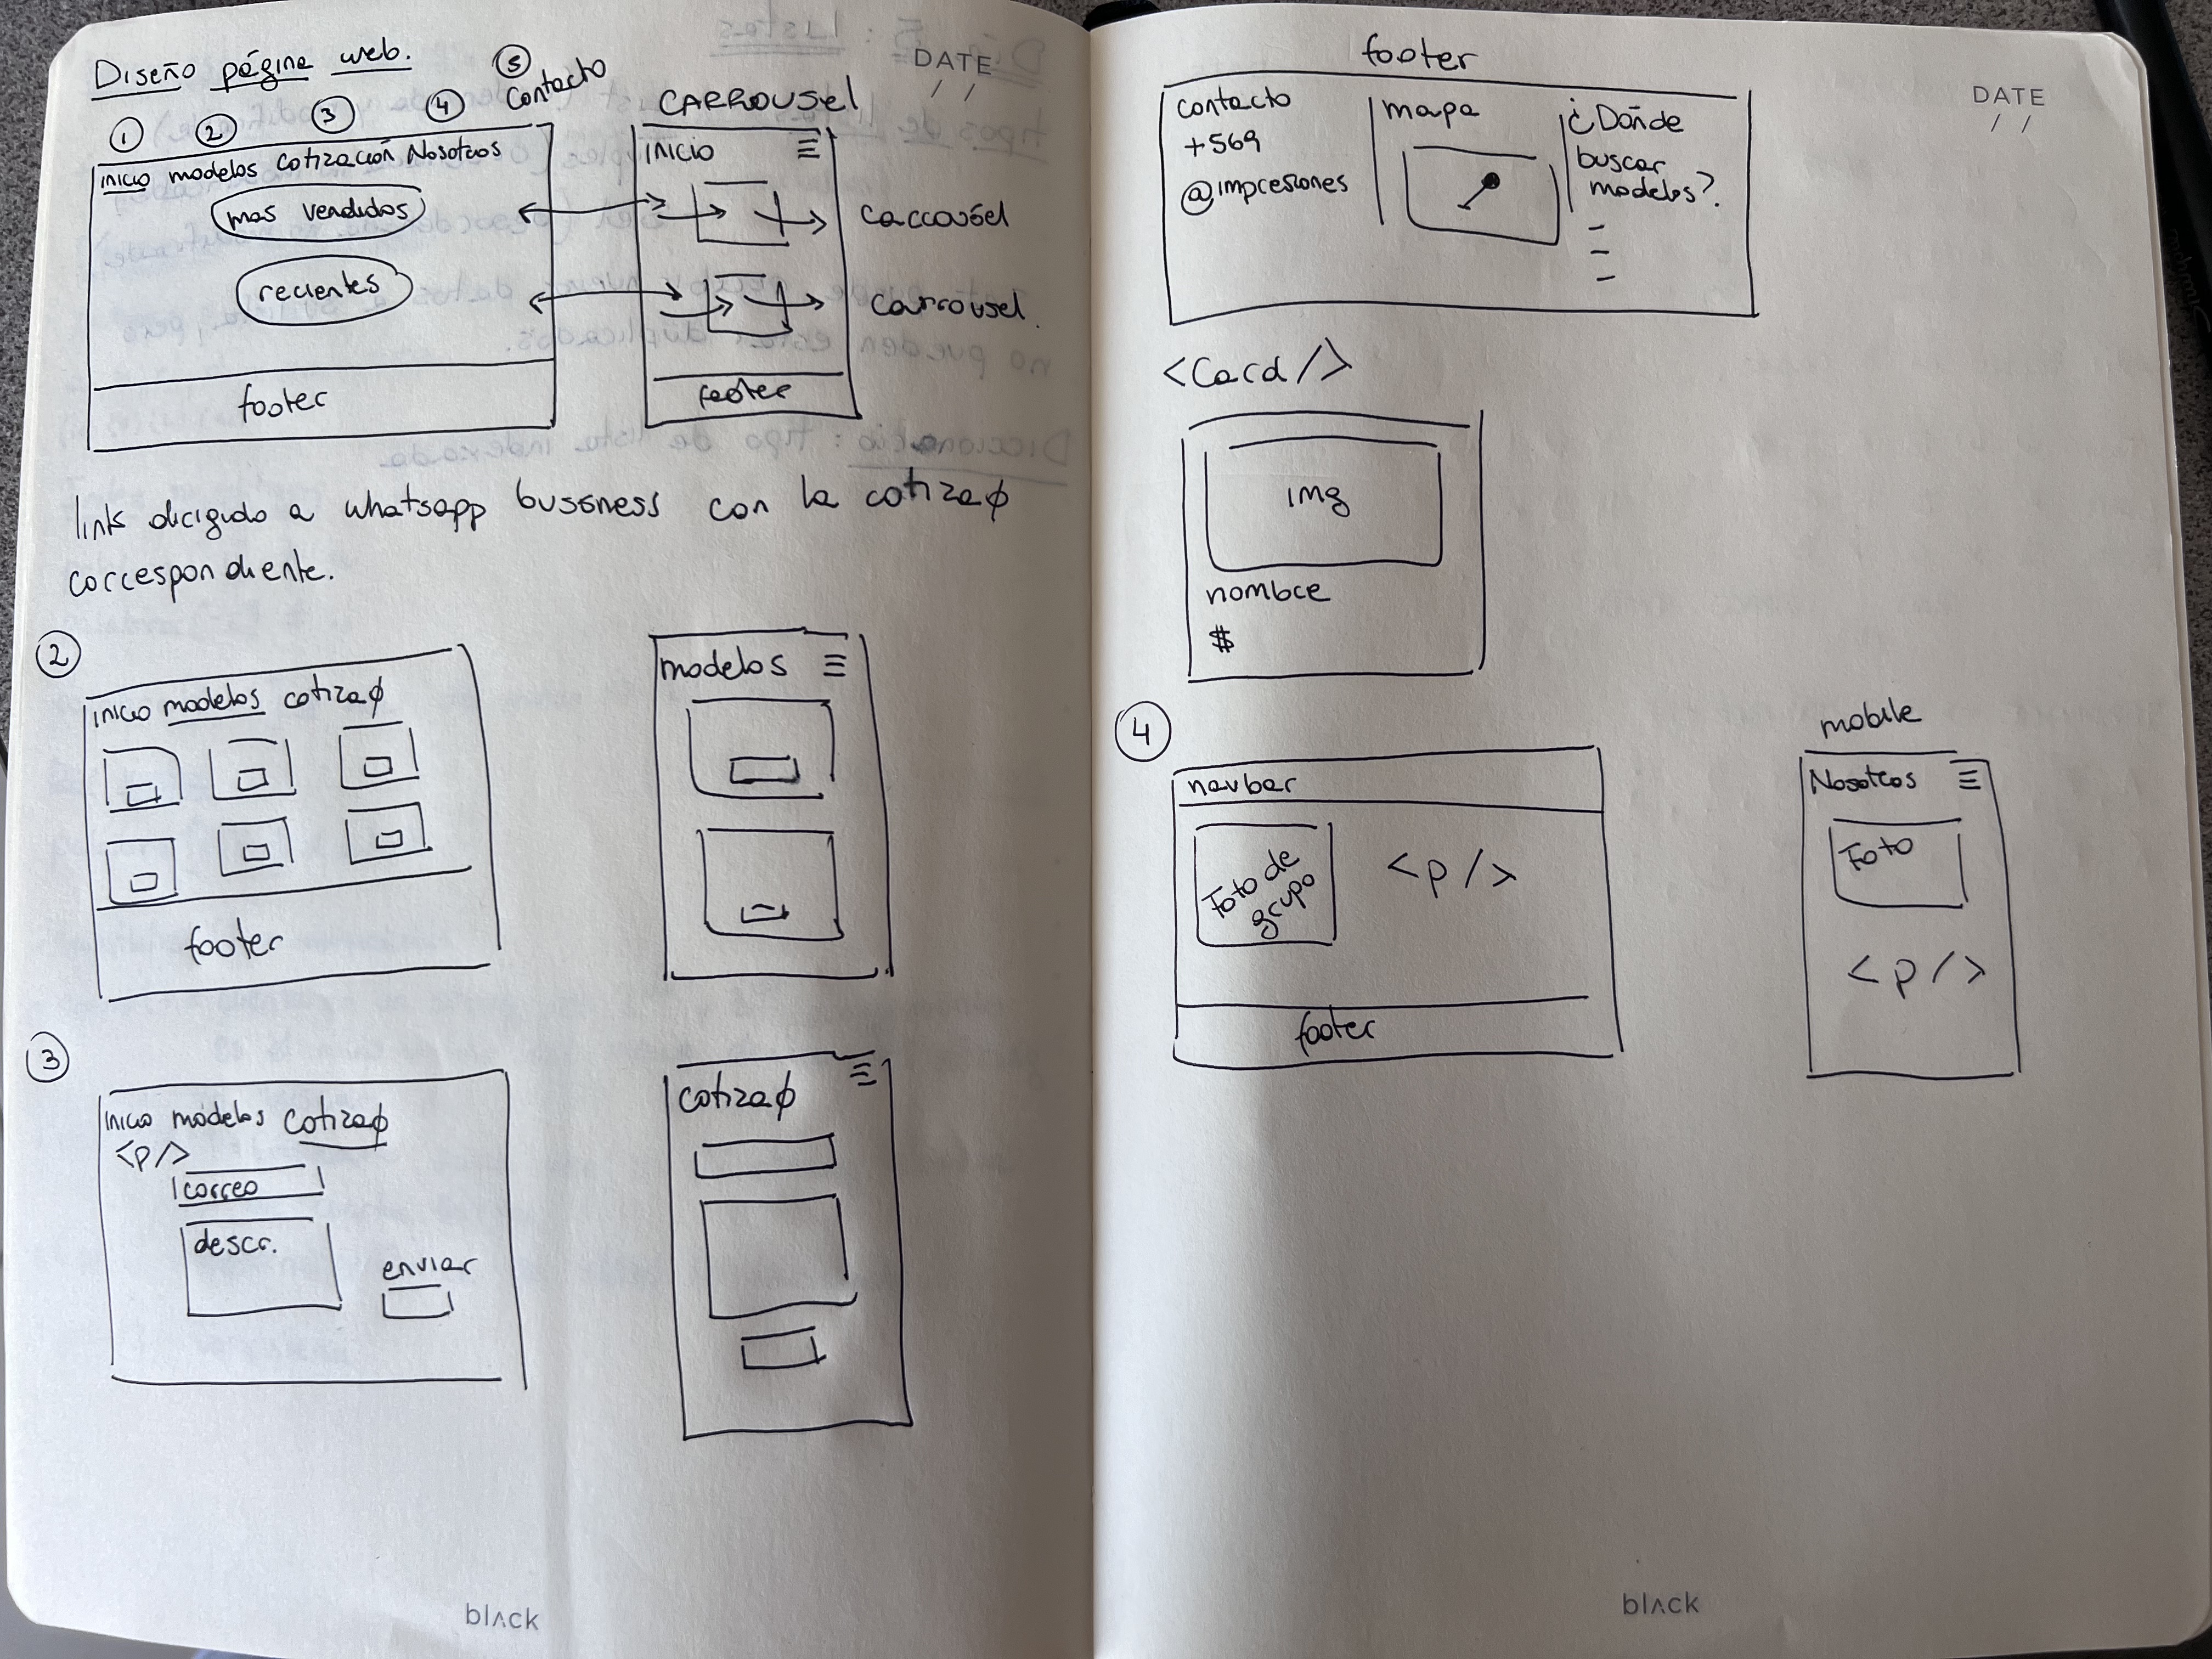 Diseño página web.
DATE
/ /
① ② ③ ④ ⑤
Contacto
CARROUSEl
inicio modelos cotización Nosotros
mas vendidos
recientes
footer
INICIO ≡
carrousel
carrousel.
footer
link dirigido a whatsapp bussness con la cotizaꞏ
correspondiente.
②
inicio modelos cotizaꞏ
footer
modelos ≡
③
Inicio modelos cotizaꞏ
<p/>
correo
descr.
enviar
cotizaꞏ ≡
blΛck
DATE
/ /
footer
contacto
+569
@impresiones
mapa
¿Dónde
buscar
modelos?
-
-
-
<Card/>
img
nombre
$
④
navbar
Foto de
grupo
<p/>
footer
mobile
Nosotros ≡
Foto
<p/>
blΛck